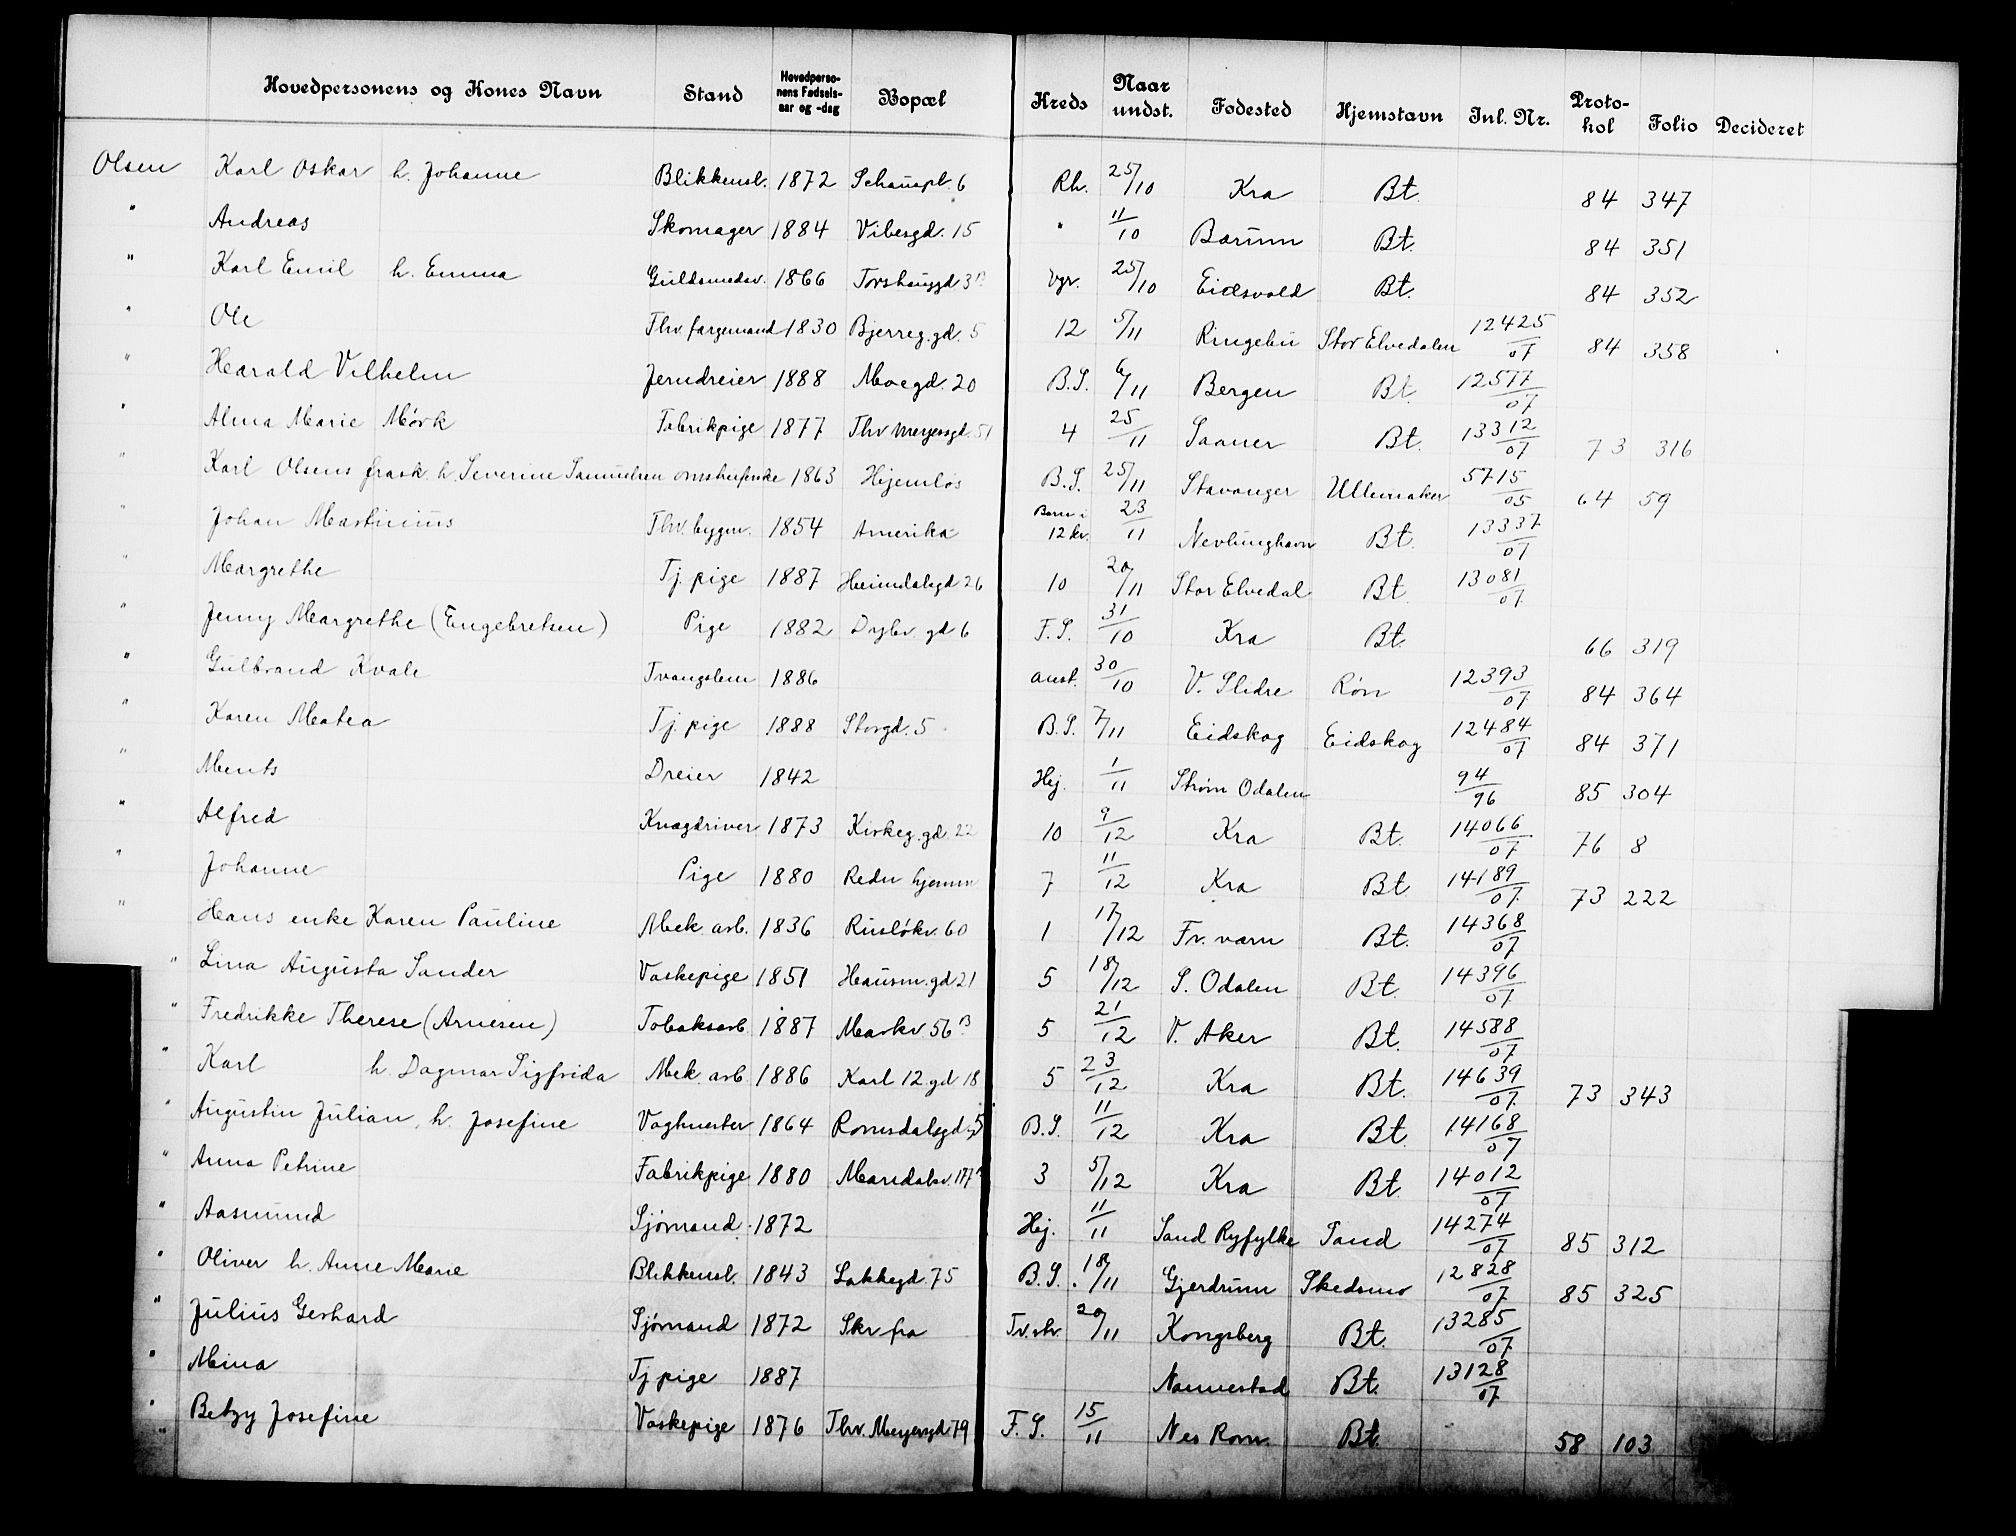 Hovedpersonens og Kones Navn Stand Hovedperso-nens Fødsels-aar og -dag Bopæl Kreds Naar undst. Fødested Hjemstavn Inl. Nr. Proto-kol Folio Decideret
Olsen Karl Oskar h. Johanne Blikkensl. 1872 Schauspl. 6 Rh. 25/10 Kra Bt. 84 347
" Andreas Skomager 1884 Vibesgd. 15 " 11/10 Bærum Bt. 84 351
" Karl Emil h. Emma Guldsmedsv. 1866 Torshauggd 3 Vgr. 25/10 Eidsvold Bt. 84 352
" Ole Thv. færgemand 1830 Bjerreg.gd. 5 12 5/11 Ringebu Stor Elvedalen 12425/07 84 358
" Harald Vilhelm Jerndreier 1888 Moegd. 20 B.S. 6/11 Bergen Bt. 12577/07
" Alma Marie Mørk Fabrikpige 1877 Thv Meyersgd. 51 4 25/11 Saaner Bt. 13312/07 73 316
" Karl Olsens frask. h. Severine Samuelsen 1863 Hjemløs B.S. 25/11 Stavanger Ullensaker 5715/05 64 59
" Johan Martinius Thv. bygm. 1854 Amerika Barn i 12 kr. 23/11 Nevlunghavn Bt. 13337/07
" Margrethe Tj. pige 1887 Heimdalsgd 26 10 20/11 Stor Elvedal Bt. 13081/07
" Jenny Margrethe (Engebretsen) Pige 1882 Dybv. gd 6 F.S. 31/10 Kra Bt. 66 319
" Gulbrand Kvale Tvangslem 1886 anst. 30/10 V. Slidre Røn 12393/07 84 364
" Karen Matea Tj. pige 1888 Storgd. 5 B.S. 7/11 Eidskog Eidskog 12484/07 84 371
" Ments Dreier 1842 Hej. 1/11 Strøm Odalen 94/96 85 304
" Alfred Kvægdriver 1873 Kirkeg.gd 22 10 9/12 Kra Bt. 14066/07 76 8
" Johanne Pige 1880 Redn hjemm 7 11/12 Kra Bt. 14189/07 73 222
" Hans enke Karen Pauline Mek. arb. 1836 Rusløkv. 60 1 17/12 Fr.værn Bt. 14368/07
" Lina Augusta Sander Vaskepige 1851 Hausm.gd 21 5 18/12 S. Odalen Bt. 14396/07
" Fredrikke Therese (Arnesen) Tobaksarb. 1887 Markv. 56 B 5 21/12 V. Aker Bt. 14588/07
" Karl h. Dagmar Sigfrida Mek arb 1886 Karl 12.gd 18 5 23/12 Kra Bt. 14639/07 73 343
" Augustin Julian, h. Josefine Vagtmester 1864 Romsdalsgd. 5 B.S. 11/12 Kra Bt. 14168/07
" Anna Petrine Fabrikpige 1880 Maridalsv. 3 5/12 Kra Bt. 14012/07
" Aasmund Sjømand 1872 Hej. 11/11 Sand Ryfylke Sand 14274/07 85 312
" Oliver h. Anne Marie Blikkensl. 1843 Lakkegd. 75 B.S. 18/11 Gjerdrum Skedsmo 12828/07 85 325
" Julius Gerhard Sjømand 1872 Skr fra Tv.str. 20/11 Kongsberg Bt. 13285/07
" Mina Tj pige 1887 Nannestad Bt. 13128/07
" Betzy Josefine Vaskepige 1876 Thv. Meyersgd 79 F.S. 15/11 Nes Rom. Bt. 58 103
"